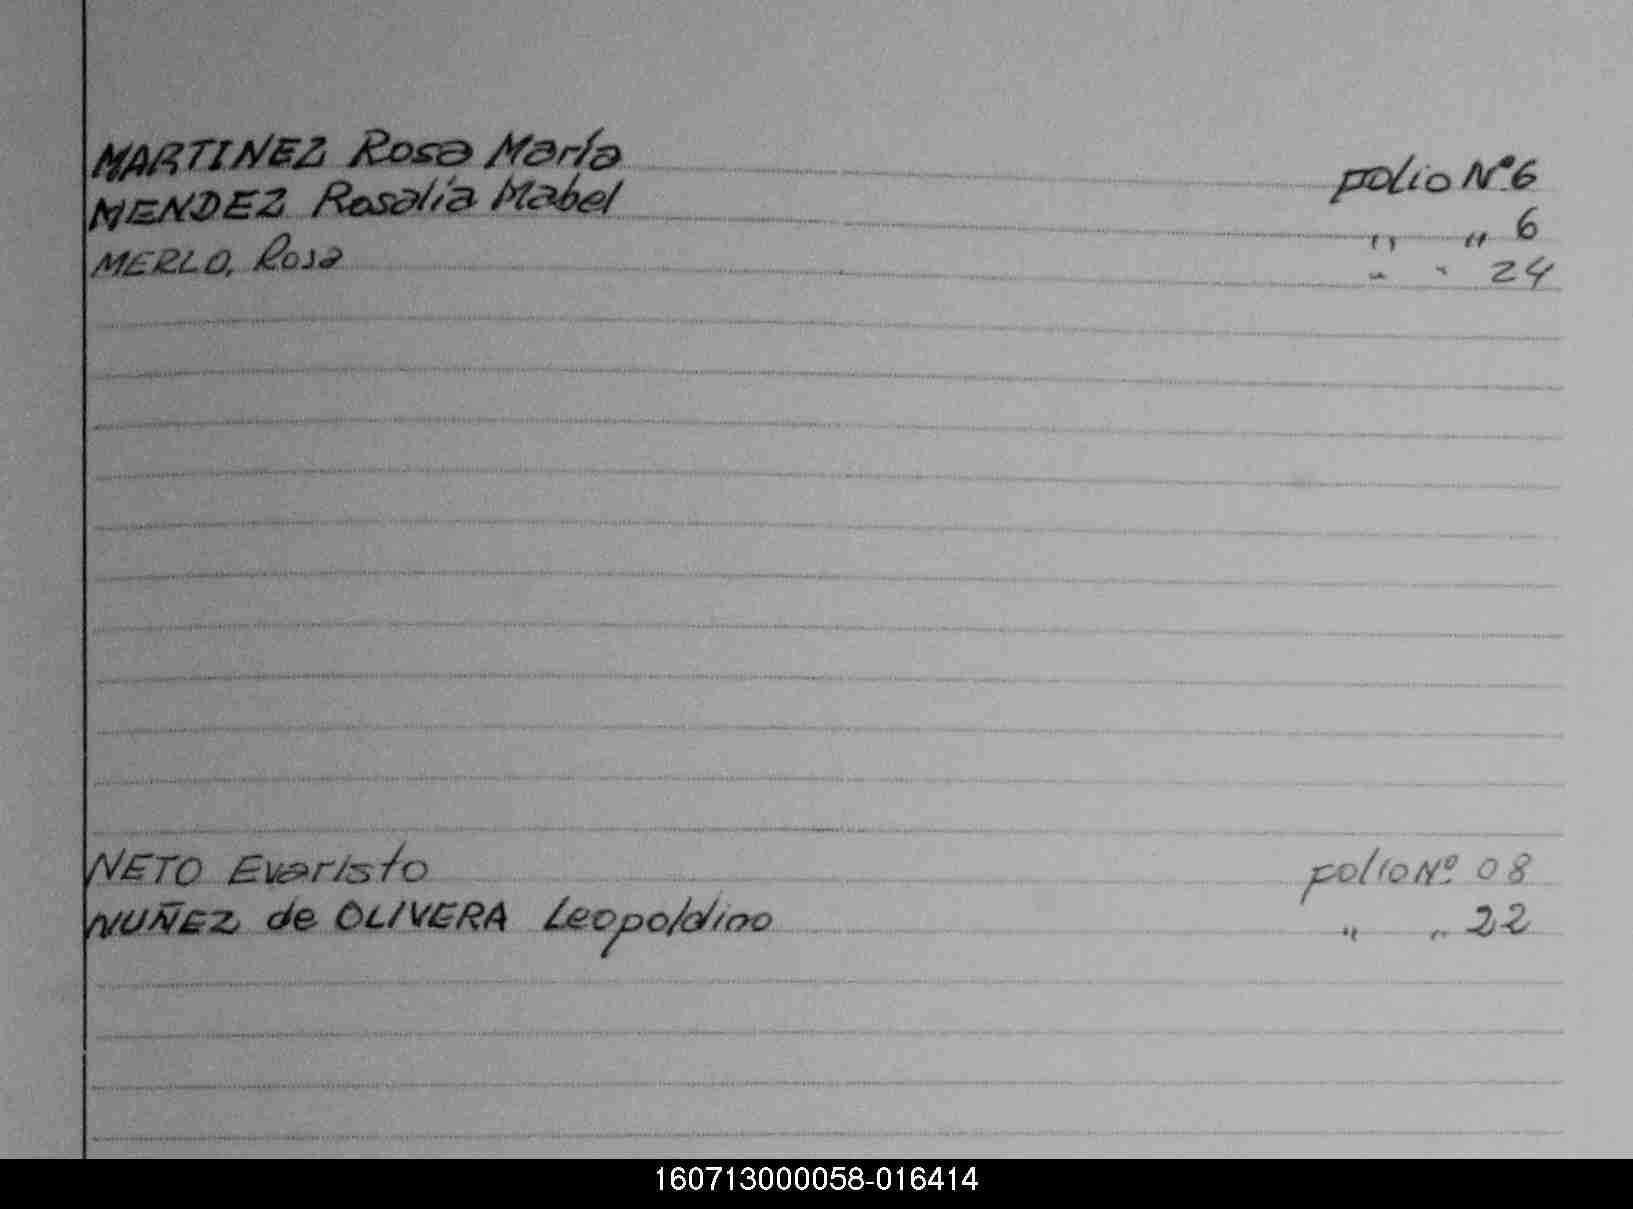 MARTINEZ Rosa María folio Nº 6
MENDEZ Rosalía Mabel " " 6
MERLO, Rosa " " 24
NETO Evaristo folio Nº 08
NUÑEZ de OLIVERA Leopoldino " " 22
160713000058-016414